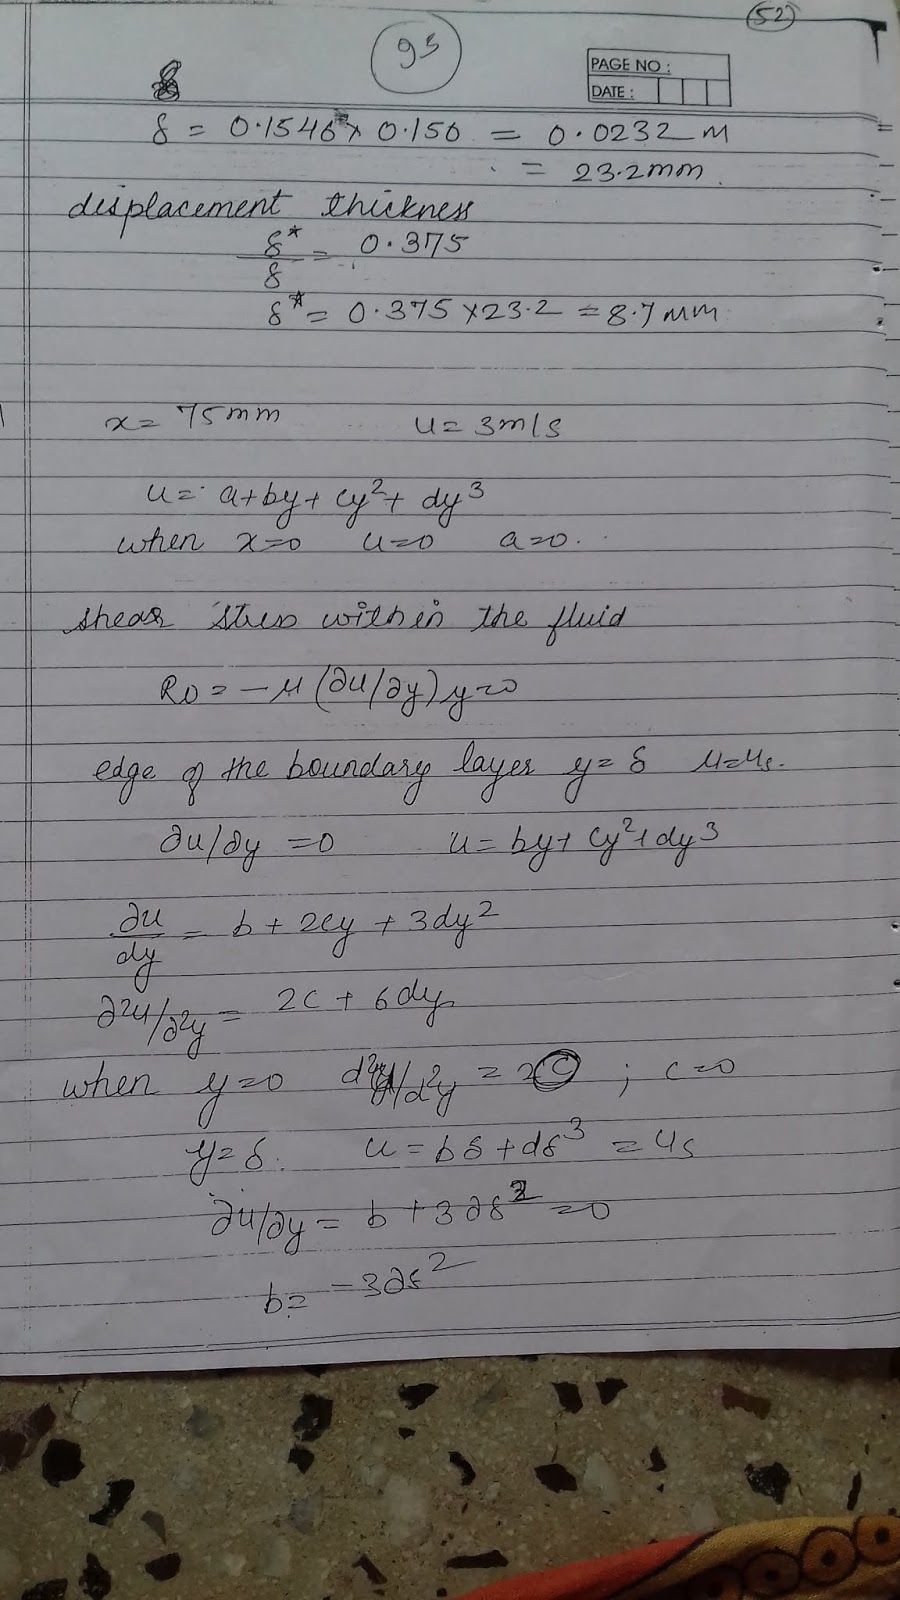 52
93
PAGE NO :
DATE :
δ = 0.1546 × 0.150 = 0.0232 m
= 23.2mm.
displacement thickness
δ*/δ = 0.375
δ* = 0.375 × 23.2 = 8.7 mm
x = 75mm u = 3m/s
u = a + by + cy² + dy³
when x=0 u=0 a=0.
shear stress within the fluid
R0 = -μ (∂u/∂y) y=0
edge of the boundary layer y = δ u=us.
∂u/∂y = 0 u = by + cy² + dy³
∂u/dy = b + 2cy + 3dy²
∂²u/∂²y = 2c + 6dy
when y=0 d²u/d²y = 2c ; c=0
y=δ. u = bδ + dδ³ = us
∂u/∂y = b + 3∂δ² = 0
b = -3∂δ²